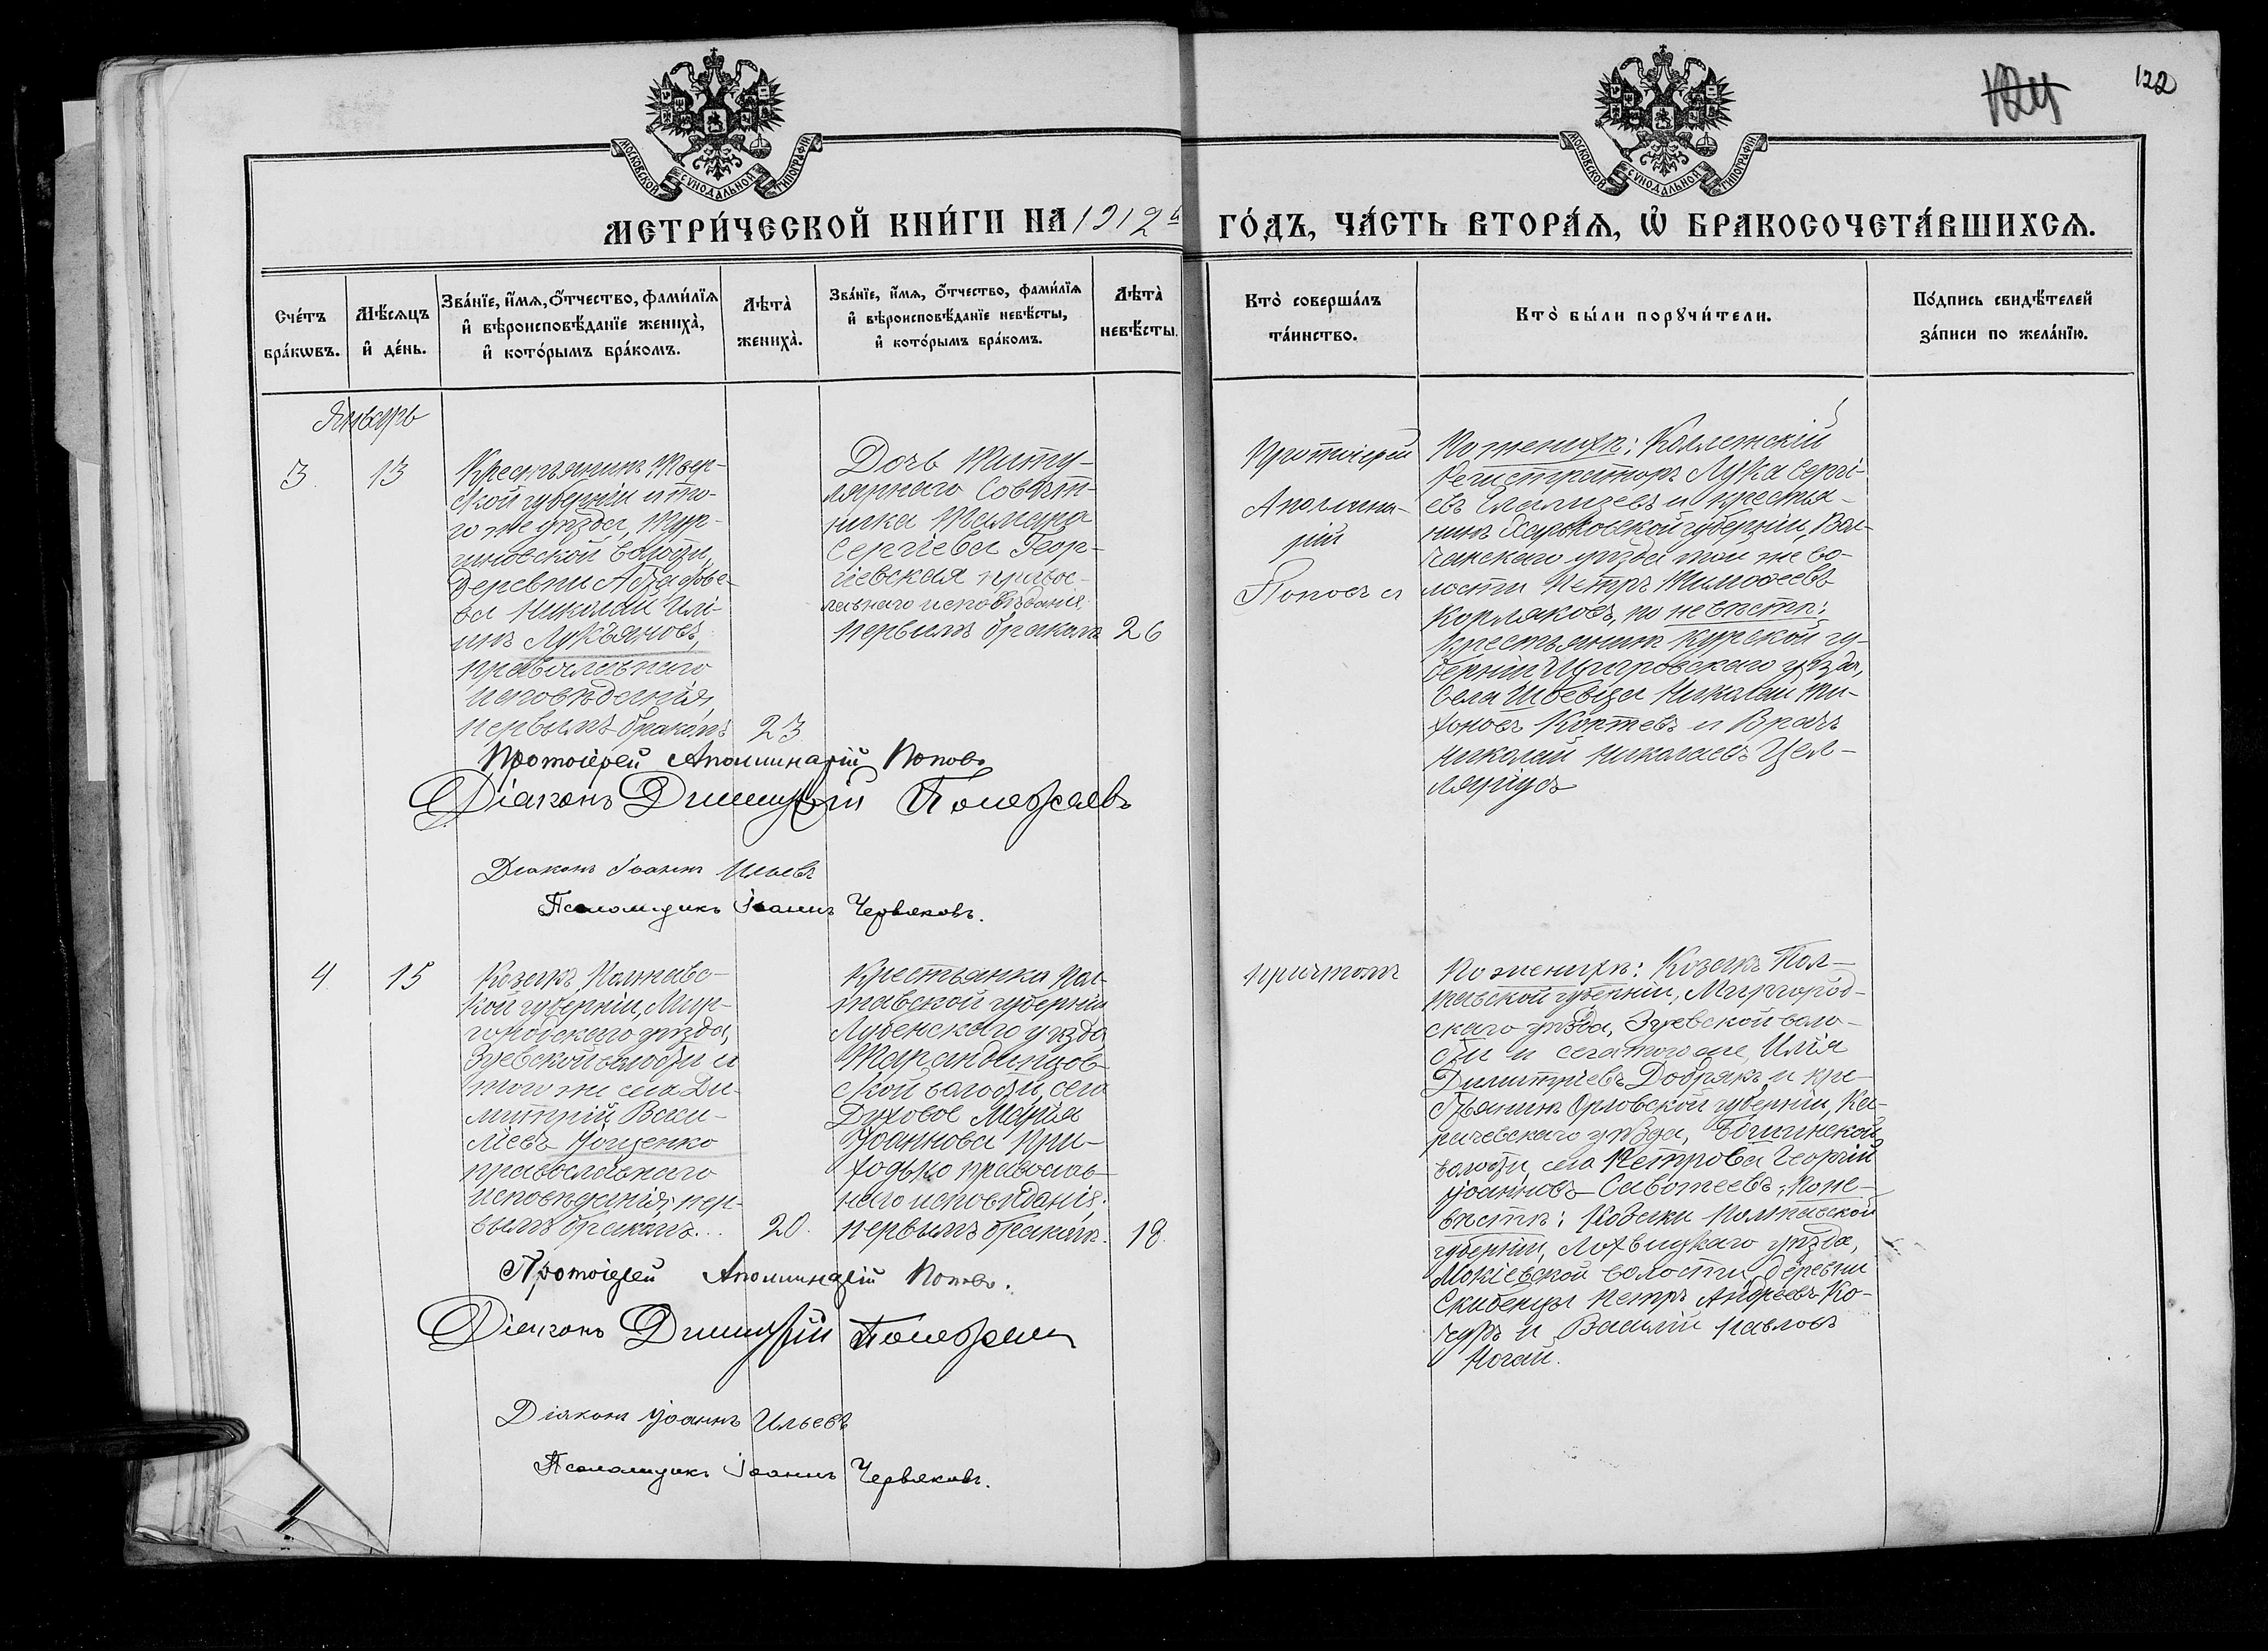 МОСКОВСКОЙ СѴНОДАЛЬНОЙ ТИПОГРАФІИ
МОСКОВСКОЙ СѴНОДАЛЬНОЙ ТИПОГРАФІИ
124
122
МЕТРИ́ЧЕСКОЙ КНИ́ГИ НА 1912й ГО́ДЪ, ЧА́СТЬ ВТОРА́Ѧ, Ѽ БРАКОСОЧЕТА́ВШИХСѦ.
Сче́тъ
бра́кѡвъ.
Мѣ́сѧцъ
и҆ де́нь.
Зва́нїе, и҆́мѧ, ѻ҆́тчество, фами́лїѧ
и҆ вѣроисповѣ́данїе жениха̀,
и҆ кото́рымъ бра́комъ.
Лѣта̀
жениха̀.
Зва́нїе, и҆́мѧ, ѻ҆́тчество, фами́лїѧ
и҆ вѣроисповѣ́данїе невѣ́сты,
и҆ кото́рымъ бра́комъ.
Лѣта̀
невѣ́сты.
Кто̀ соверша́лъ
та́инство.
Кто̀ бы́ли порꙋчи́тели.
По́дпись свидѣ́телей
за́писи по жела́нїю.
Январь
3
13
Крестьянинъ Твер-
ской губерніи и то-
го же уѣзда, Тур-
гиновской волости,
деревни
ва Николай Иль-
инъ Лукьяновъ,
православнаго
исповѣданія,
первымъ бракомъ
23
Дочь Титу-
лярнаго Совѣт-
ника Тамара
Сергіева Геор-
гіевская право-
славнаго исповѣданія
первымъ бракомъ
26
Протоіерей
Аполлина-
рій
Поповъ
По женихѣ: Коллежскій
Регистраторъ Лука Сергі-
евъ и крестья-
нинъ Харьковской губерніи, Вол-
чанскаго уѣзда той же во-
лости Петръ Тимофеевъ
Корляковъ, по невѣстѣ:
крестьянинъ Курской гу-
берніи Щигровскаго уѣзда,
села Николай Ти-
хоновъ Коктевъ и Врачъ
Николай Николаевъ Цел-
ляріусъ
Протоіерей Аполлинарій Поповъ
Діаконъ Димитрій
Діаконъ Іоаннъ Ильевъ
Псаломщикъ Іоаннъ Червяковъ.
4
15
Козакъ Полтавс-
кой губерніи, Мир-
городскаго уѣзда,
Зуевской волости и
того же села Ди-
митрій Васи-
ліевъ Ющенко
православнаго
исповѣданія, пер-
вымъ бракомъ...
20.
Крестьянка Пол-
тавской губерніи
Лубенскаго уѣзда
Тарандинцов-
ской волости, села
Духовое Марія
Іоаннова При-
ходько православ-
наго исповѣданія,
первымъ бракомъ.
18.
причтомъ
По женихѣ: Козакъ Пол-
тавской губерніи, Миргород-
скаго уѣзда, Зуевской воло-
сти и села того же, Илія
Димитріевъ Добрякъ, и кре-
стьянинъ Орловской губерніи, Ка-
рачевскаго уѣзда,
волости, села Петрова Георгій
Іоанновъ Савотеевъ; По не-
вѣстѣ: Козаки Полтавской
губерніи, Лохвицкаго уѣзда,
Мокіевской волости, деревни
Скибенцы Петръ Андреевъ Ко-
чуръ и Василій Павловъ
Ногай.
Протоіерей Аполлинарій Поповъ.
Діаконъ Димитрій
Діаконъ Іоаннъ Ильевъ
Псаломщикъ Іоаннъ Червяковъ.